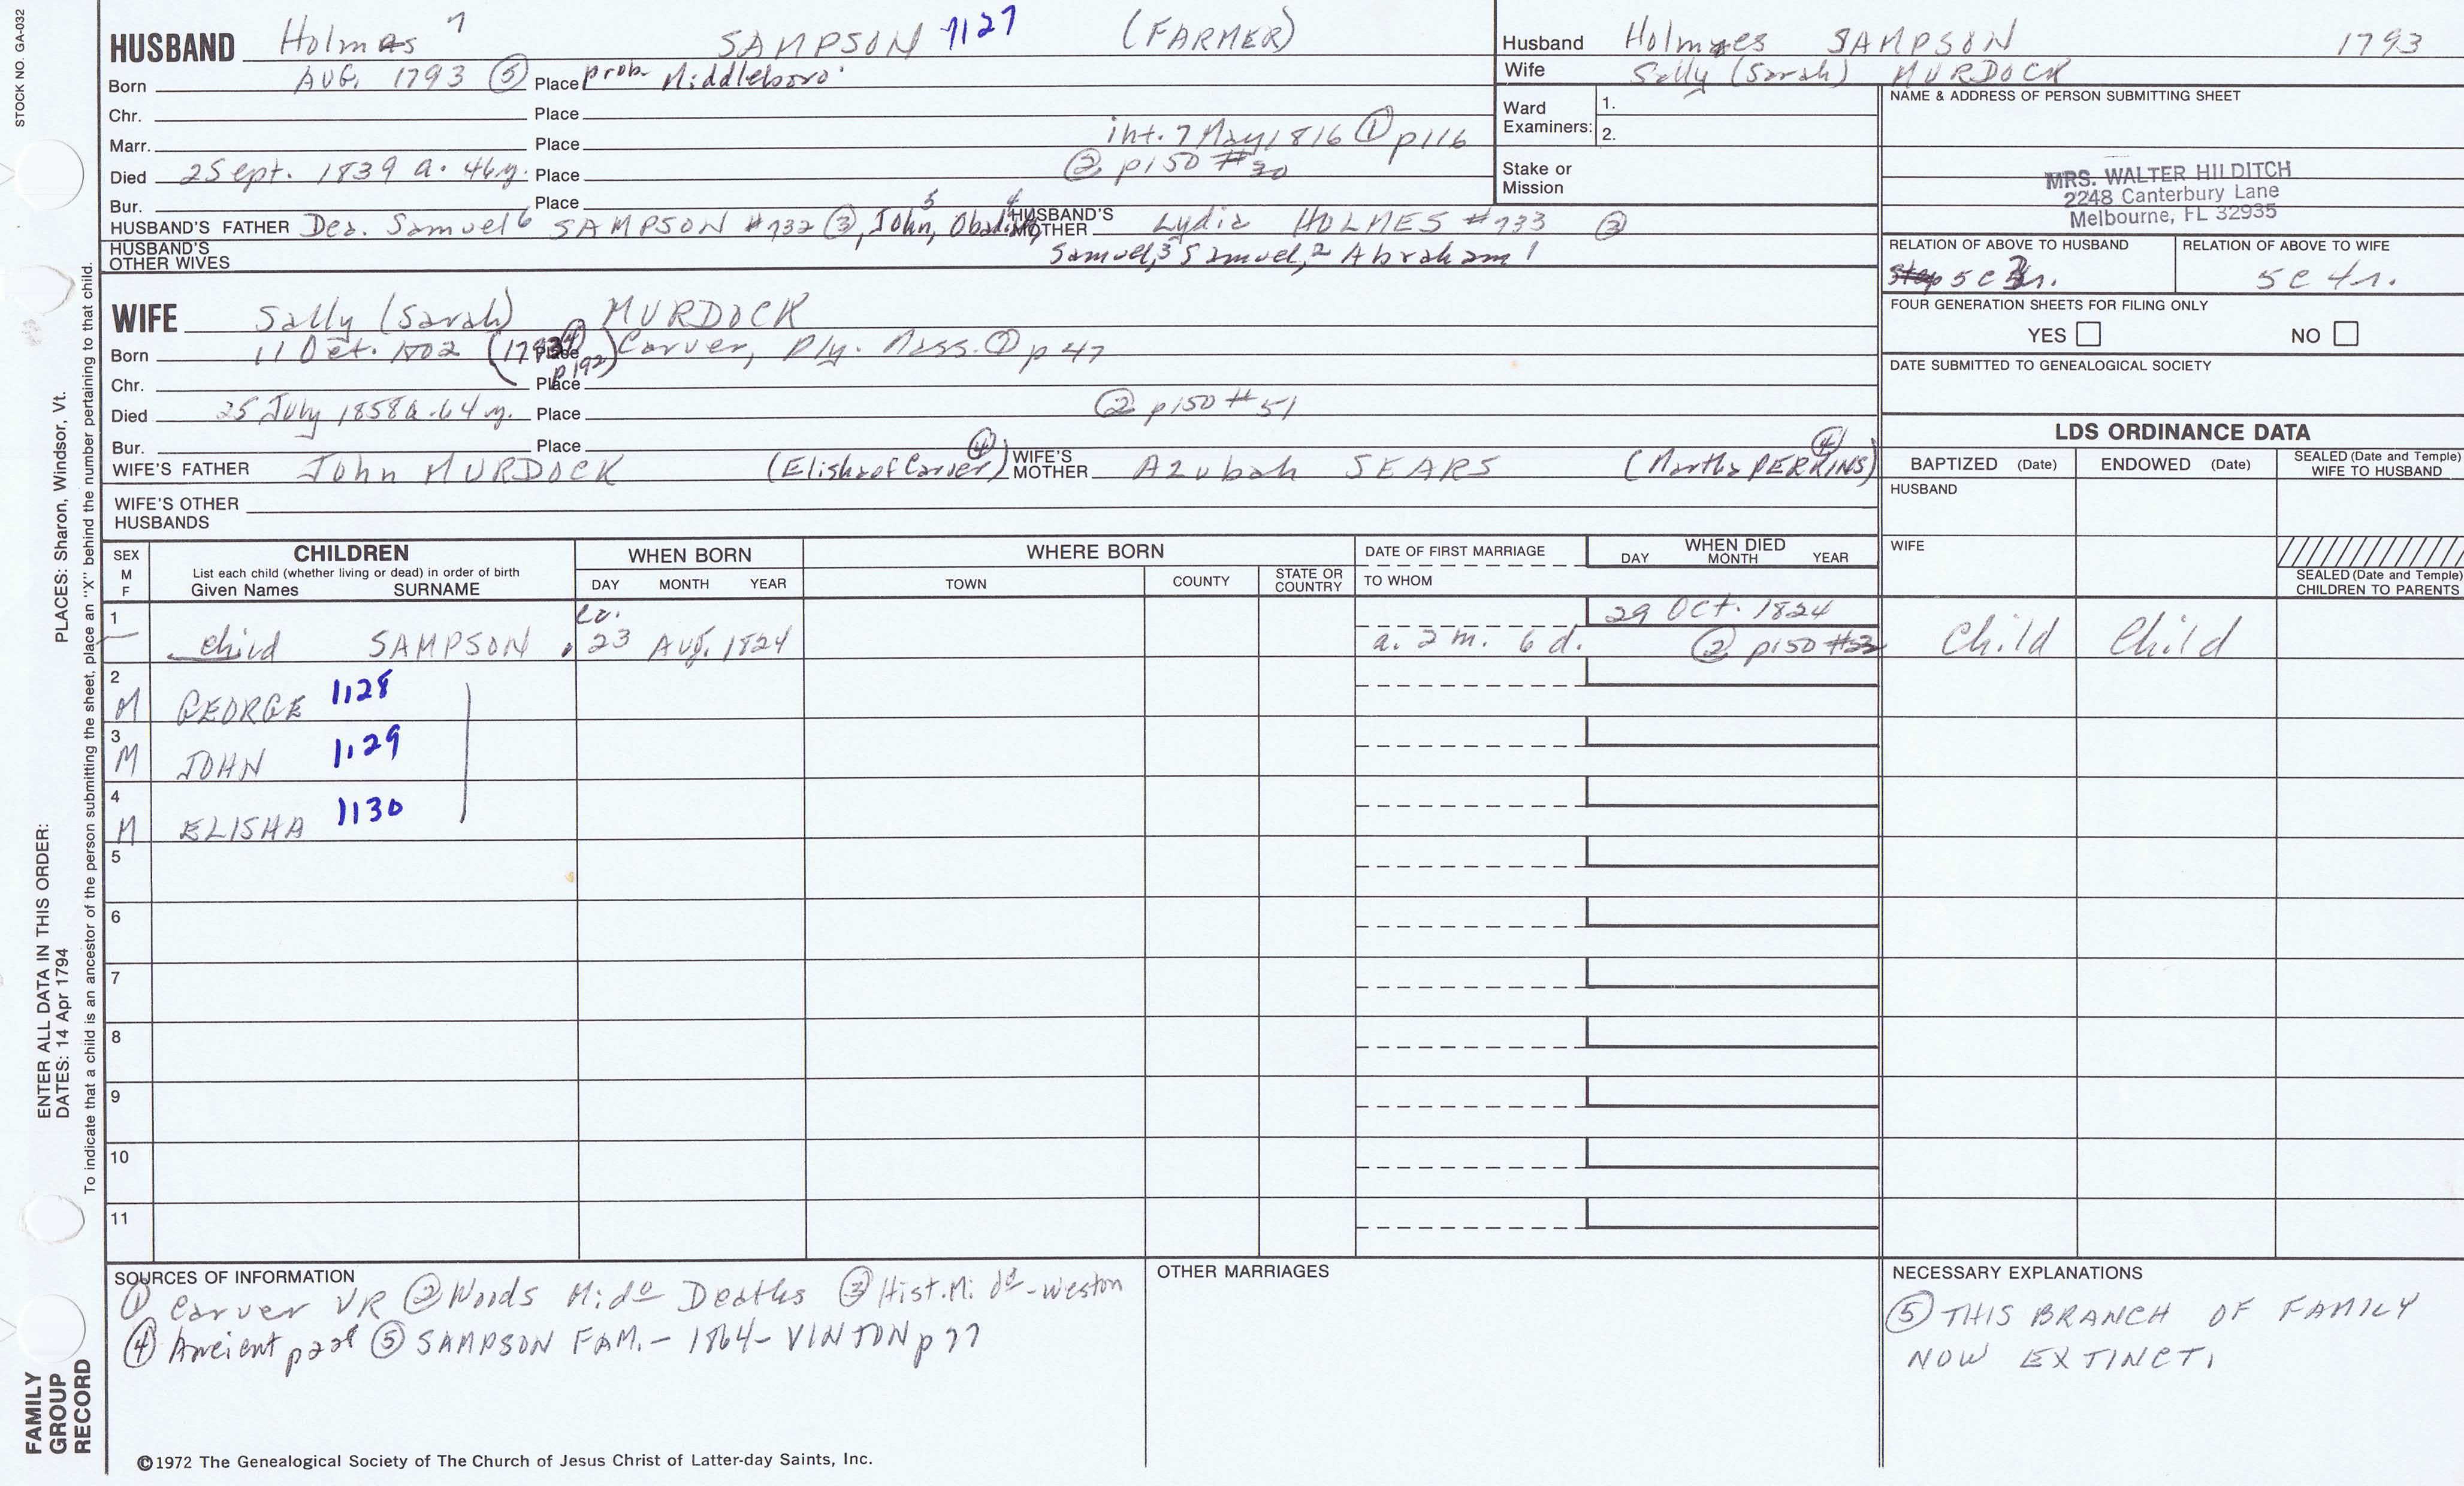 STOCK NO. GA-032
HUSBAND Holmes 7 SAMPSON 1127 (FARMER)
Born AUG. 1793 ⑤ Place prob. Middleboro
Chr. Place
Marr. Place int. 7 May 1816 ① p116
Died 2 Sept. 1839 a. 46y. Place ② p150 #30
Bur. Place
HUSBAND'S FATHER Dea. Samuel 6 SAMPSON #732 ③, John, 5 Obadiah, 4 HUSBAND'S MOTHER Lydia HOLMES #733 ③
HUSBAND'S OTHER WIVES Samuel, 3 Samuel, 2 Abraham 1
Husband Holmes SAMPSON 1793
Wife Sally (Sarah) MURDOCK
Ward Examiners: 1.
2.
Stake or Mission
NAME & ADDRESS OF PERSON SUBMITTING SHEET
MRS. WALTER HILDITCH
2248 Canterbury Lane
Melbourne, FL 32935
RELATION OF ABOVE TO HUSBAND RELATION OF ABOVE TO WIFE
5c 3r. 5c 4r.
FOUR GENERATION SHEETS FOR FILING ONLY
YES NO
DATE SUBMITTED TO GENEALOGICAL SOCIETY
WIFE Sally (Sarah) MURDOCK
Born 11 Oct. 1802 Place Carver, Ply. Mass. ① p 47
p 192)
Chr. Place
Died 25 July 1858 a. 64 y. Place ② p150 #51
Bur. Place
WIFE'S FATHER John MURDOCK (Elisha of Carver) ④ WIFE'S MOTHER Azubah SEARS (Martha PERKINS) ④
WIFE'S OTHER HUSBANDS
LDS ORDINANCE DATA
BAPTIZED (Date) ENDOWED (Date) SEALED (Date and Temple) WIFE TO HUSBAND
HUSBAND
WIFE
SEALED (Date and Temple) CHILDREN TO PARENTS
SEX M F CHILDREN WHEN BORN WHERE BORN DATE OF FIRST MARRIAGE WHEN DIED
List each child (whether living or dead) in order of birth
Given Names SURNAME DAY MONTH YEAR TOWN COUNTY STATE OR COUNTRY TO WHOM DAY MONTH YEAR
1 child SAMPSON ca. 23 Aug. 1824 a. 2 m. 6 d. 29 Oct. 1824 ② p150 Child Child
2 M GEORGE 1128
3 M JOHN 1129
4 M ELISHA 1130
5
6
7
8
9
10
11
SOURCES OF INFORMATION
① Carver VR ② Woods Mido Deaths ③ Hist. Mido - Weston
④ Ancient ⑤ SAMPSON FAM. - 1864 - VINTON p 77
OTHER MARRIAGES
NECESSARY EXPLANATIONS
⑤ THIS BRANCH OF FAMILY
NOW EXTINCT.
©1972 The Genealogical Society of The Church of Jesus Christ of Latter-day Saints, Inc.
FAMILY GROUP RECORD
ENTER ALL DATA IN THIS ORDER:
DATES: 14 Apr 1794 PLACES: Sharon, Windsor, Vt.
To indicate that a child is an ancestor of the person submitting the sheet, place an "X" behind the number pertaining to that child.